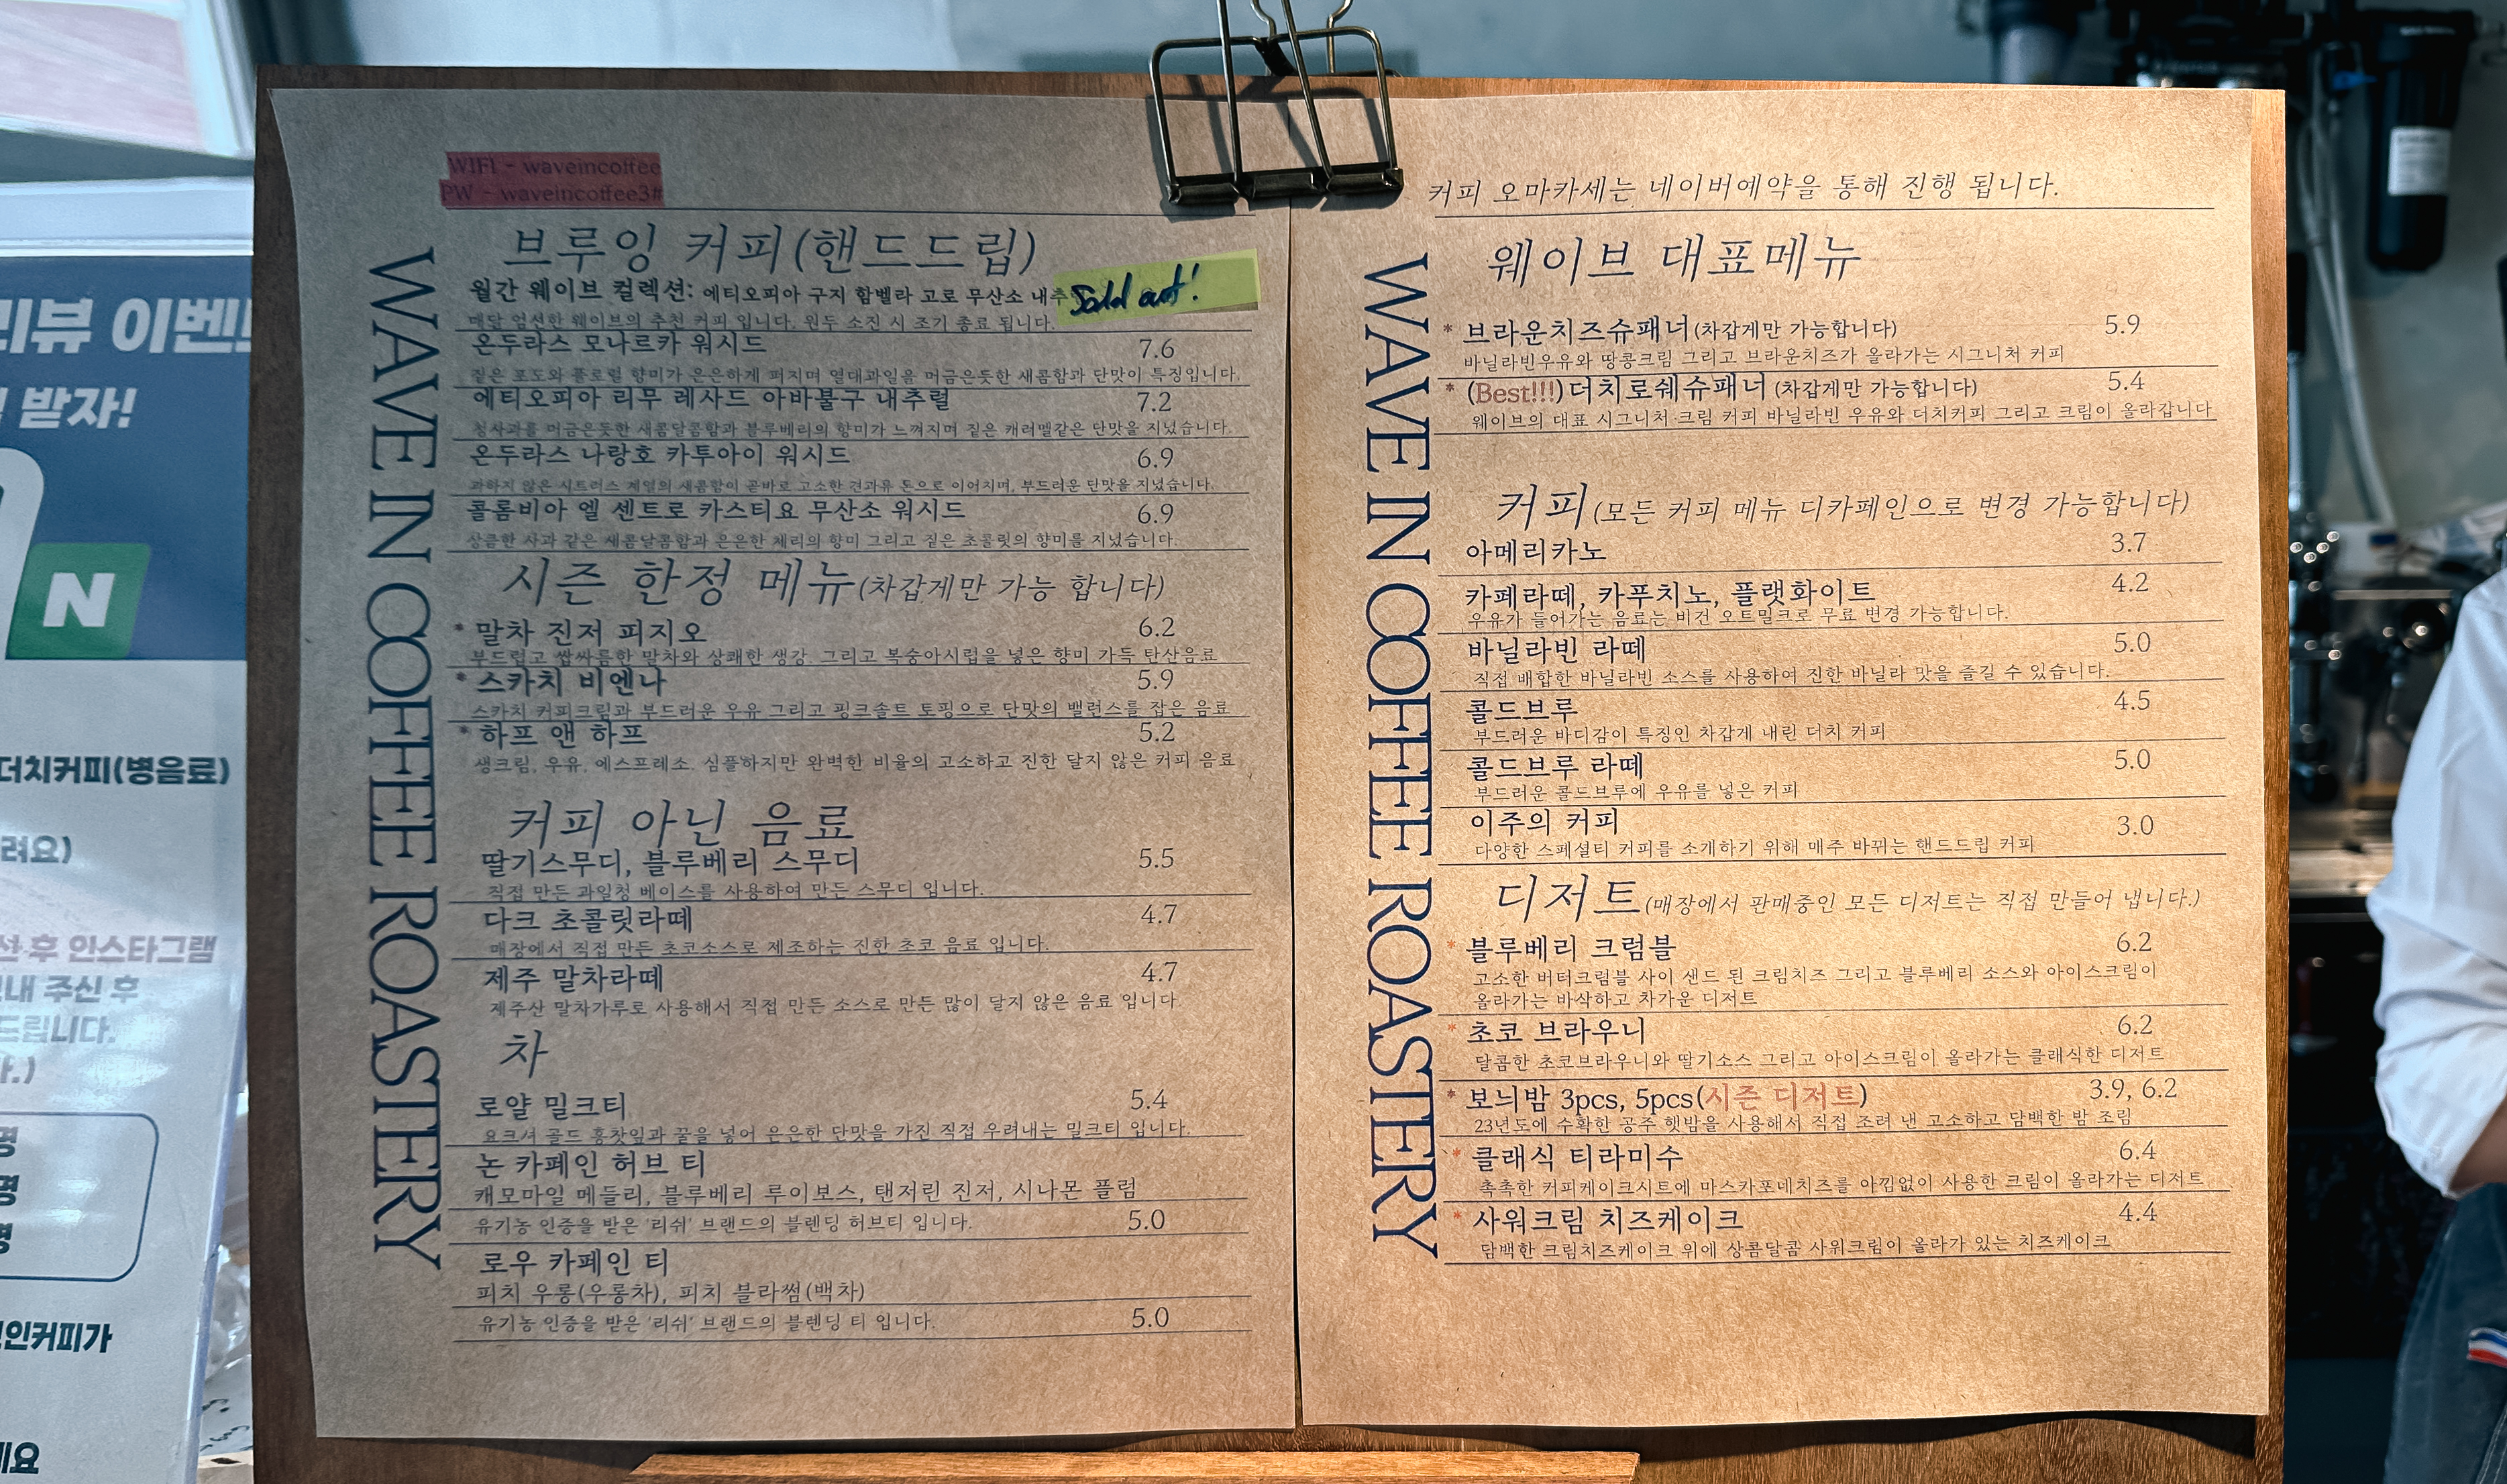 WIFI - waveincoffee
PW - waveincoffee3#
WAVE IN COFFEE ROASTERY
브루잉 커피(핸드드립)
월간 웨이브 컬렉션: 에티오피아 구지 함벨라 고로 무산소 내추
Sold out!
매달 엄선한 웨이브의 추천 커피 입니다. 원두 소진 시 조기 종료 됩니다.
온두라스 모나르카 워시드 7.6
짙은 포도와 플로럴 향미가 은은하게 퍼지며 열대과일을 머금은듯한 새콤함과 단맛이 특징입니다.
에티오피아 리무 레샤드 아바불구 내추럴 7.2
청사과를 머금은듯한 새콤달콤함과 블루베리의 향미가 느껴지며 짙은 캐러멜같은 단맛을 지녔습니다.
온두라스 나랑호 카투아이 워시드 6.9
과하지 않은 시트러스 계열의 새콤함이 곧바로 고소한 견과류 톤으로 이어지며, 부드러운 단맛을 지녔습니다.
콜롬비아 엘 센트로 카스티요 무산소 워시드 6.9
상큼한 사과 같은 새콤달콤함과 은은한 체리의 향미 그리고 짙은 초콜릿의 향미를 지녔습니다.
시즌 한정 메뉴(차갑게만 가능 합니다)
* 말차 진저 피지오 6.2
부드럽고 쌉싸름한 말차와 상쾌한 생강. 그리고 복숭아시럽을 넣은 향미 가득 탄산음료
* 스카치 비엔나 5.9
스카치 커피크림과 부드러운 우유 그리고 핑크솔트 토핑으로 단맛의 밸런스를 잡은 음료
* 하프 앤 하프 5.2
생크림, 우유, 에스프레소. 심플하지만 완벽한 비율의 고소하고 진한 달지 않은 커피 음료
커피 아닌 음료
딸기스무디, 블루베리 스무디 5.5
직접 만든 과일청 베이스를 사용하여 만든 스무디 입니다.
다크 초콜릿라떼 4.7
매장에서 직접 만든 초코소스로 제조하는 진한 초코 음료 입니다.
제주 말차라떼 4.7
제주산 말차가루로 사용해서 직접 만든 소스로 만든 많이 달지 않은 음료 입니다
차
로얄 밀크티 5.4
요크셔 골드 홍찻잎과 꿀을 넣어 은은한 단맛을 가진 직접 우려내는 밀크티 입니다.
논 카페인 허브 티
캐모마일 메들리, 블루베리 루이보스, 탠저린 진저, 시나몬 플럼
유기농 인증을 받은 '리쉬' 브랜드의 블렌딩 허브티 입니다. 5.0
로우 카페인 티
피치 우롱(우롱차), 피치 블라썸(백차)
유기농 인증을 받은 '리쉬' 브랜드의 블렌딩 티 입니다. 5.0
커피 오마카세는 네이버예약을 통해 진행 됩니다.
WAVE IN COFFEE ROASTERY
웨이브 대표메뉴
* 브라운치즈슈패너(차갑게만 가능합니다) 5.9
바닐라빈우유와 땅콩크림 그리고 브라운치즈가 올라가는 시그니처 커피
* (Best!!!)더치로쉐슈패너 (차갑게만 가능합니다) 5.4
웨이브의 대표 시그니처 크림 커피 바닐라빈 우유와 더치커피 그리고 크림이 올라갑니다
커피(모든 커피 메뉴 디카페인으로 변경 가능합니다)
아메리카노 3.7
카페라떼, 카푸치노, 플랫화이트 4.2
우유가 들어가는 음료는 비건 오트밀크로 무료 변경 가능합니다.
바닐라빈 라떼 5.0
직접 배합한 바닐라빈 소스를 사용하여 진한 바닐라 맛을 즐길 수 있습니다.
콜드브루 4.5
부드러운 바디감이 특징인 차갑게 내린 더치 커피
콜드브루 라떼 5.0
부드러운 콜드브루에 우유를 넣은 커피
이주의 커피 3.0
다양한 스페셜티 커피를 소개하기 위해 매주 바뀌는 핸드드립 커피
디저트(매장에서 판매중인 모든 디저트는 직접 만들어 냅니다.)
* 블루베리 크럼블 6.2
고소한 버터크럼블 사이 샌드 된 크림치즈 그리고 블루베리 소스와 아이스크림이
올라가는 바삭하고 차가운 디저트
* 초코 브라우니 6.2
달콤한 초코브라우니와 딸기소스 그리고 아이스크림이 올라가는 클래식한 디저트
* 보늬밤 3pcs, 5pcs(시즌 디저트) 3.9, 6.2
23년도에 수확한 공주 햇밤을 사용해서 직접 조려 낸 고소하고 담백한 밤 조림
* 클래식 티라미수 6.4
촉촉한 커피케이크시트에 마스카포네치즈를 아낌없이 사용한 크림이 올라가는 디저트
* 사워크림 치즈케이크 4.4
담백한 크림치즈케이크 위에 상콤달콤 사워크림이 올라가 있는 치즈케이크
리뷰 이벤트
받자!
N
더치커피(병음료)
려요)
후 인스타그램
내 주신 후
드립니다.
명
명
명
인커피가
세요